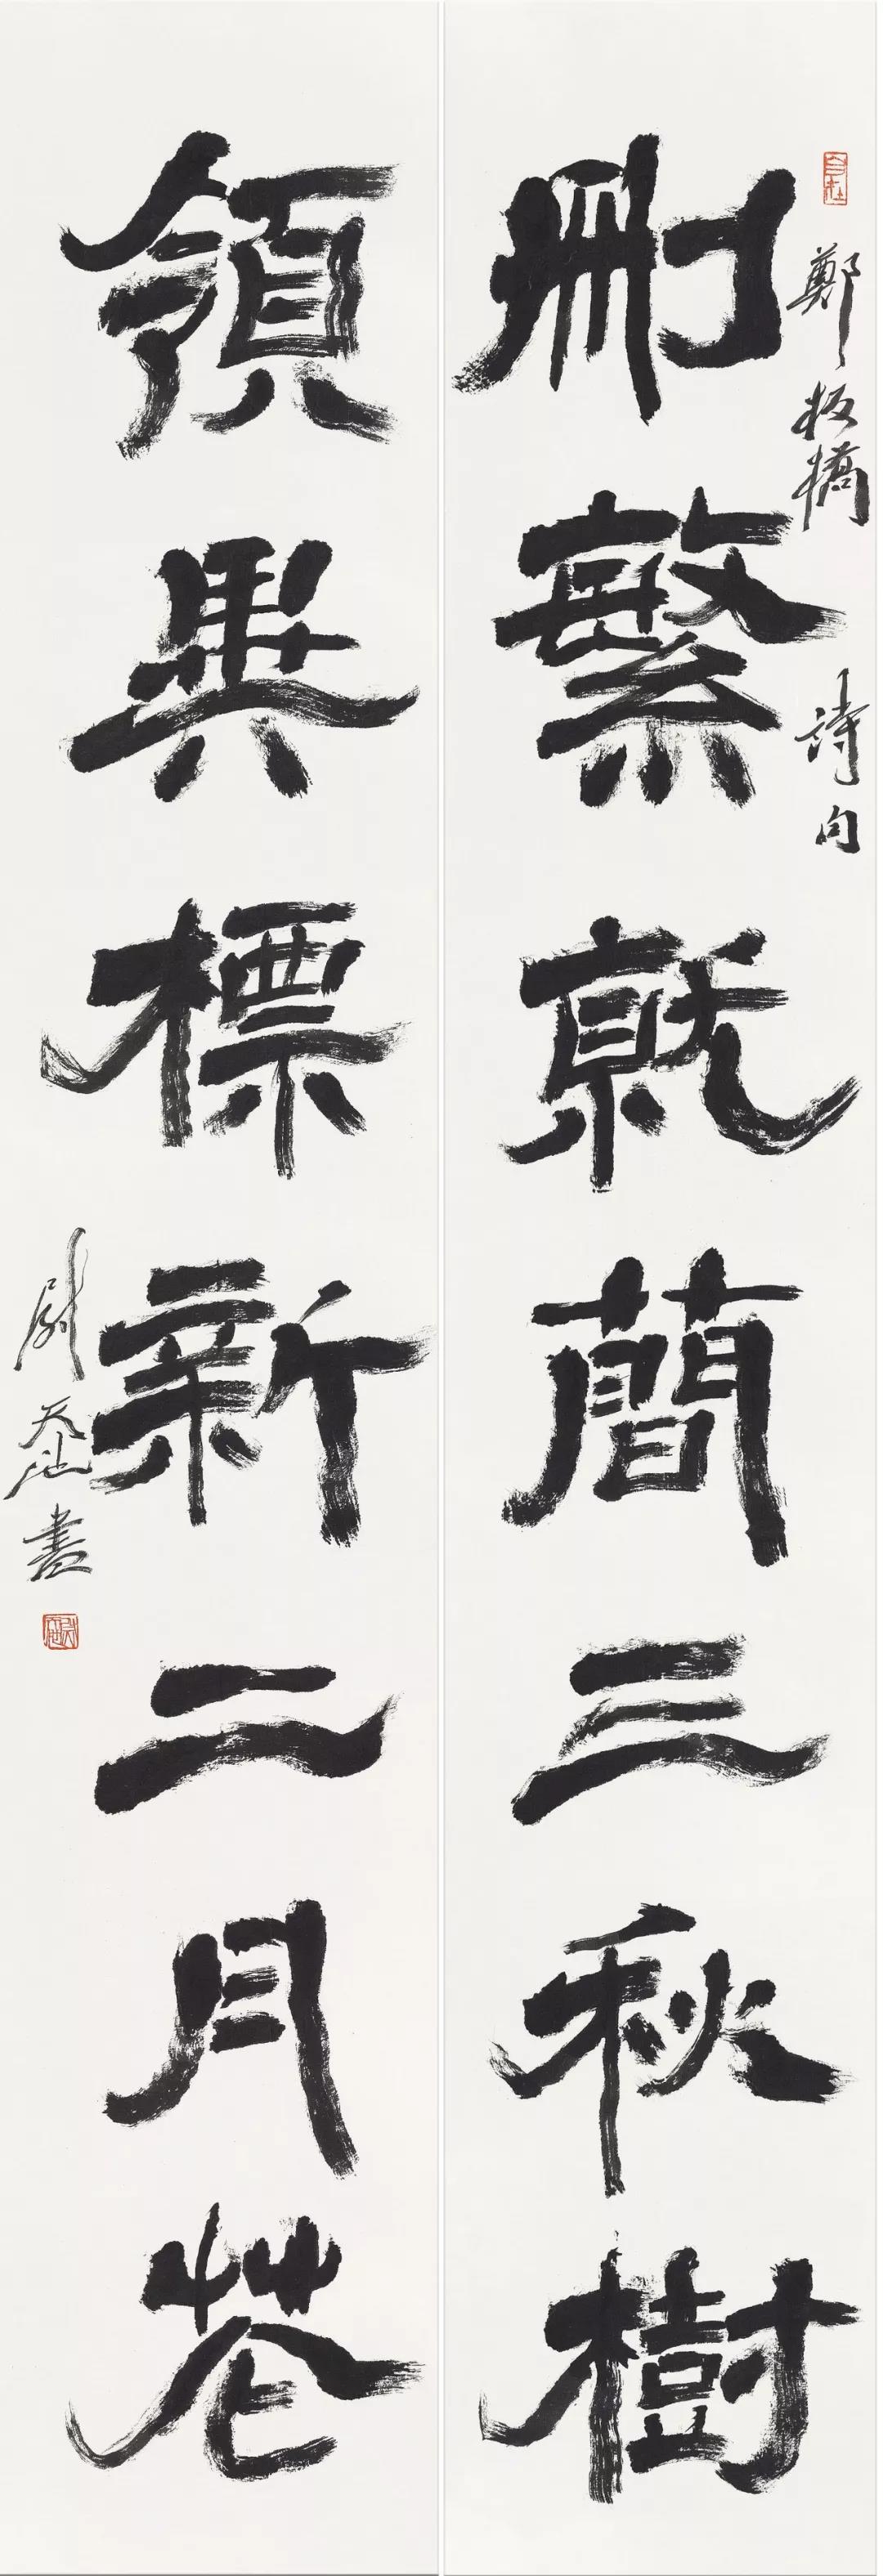 鄭板橋 詩句
刪繁就簡三秋樹
領異標新二月花
尉天池書